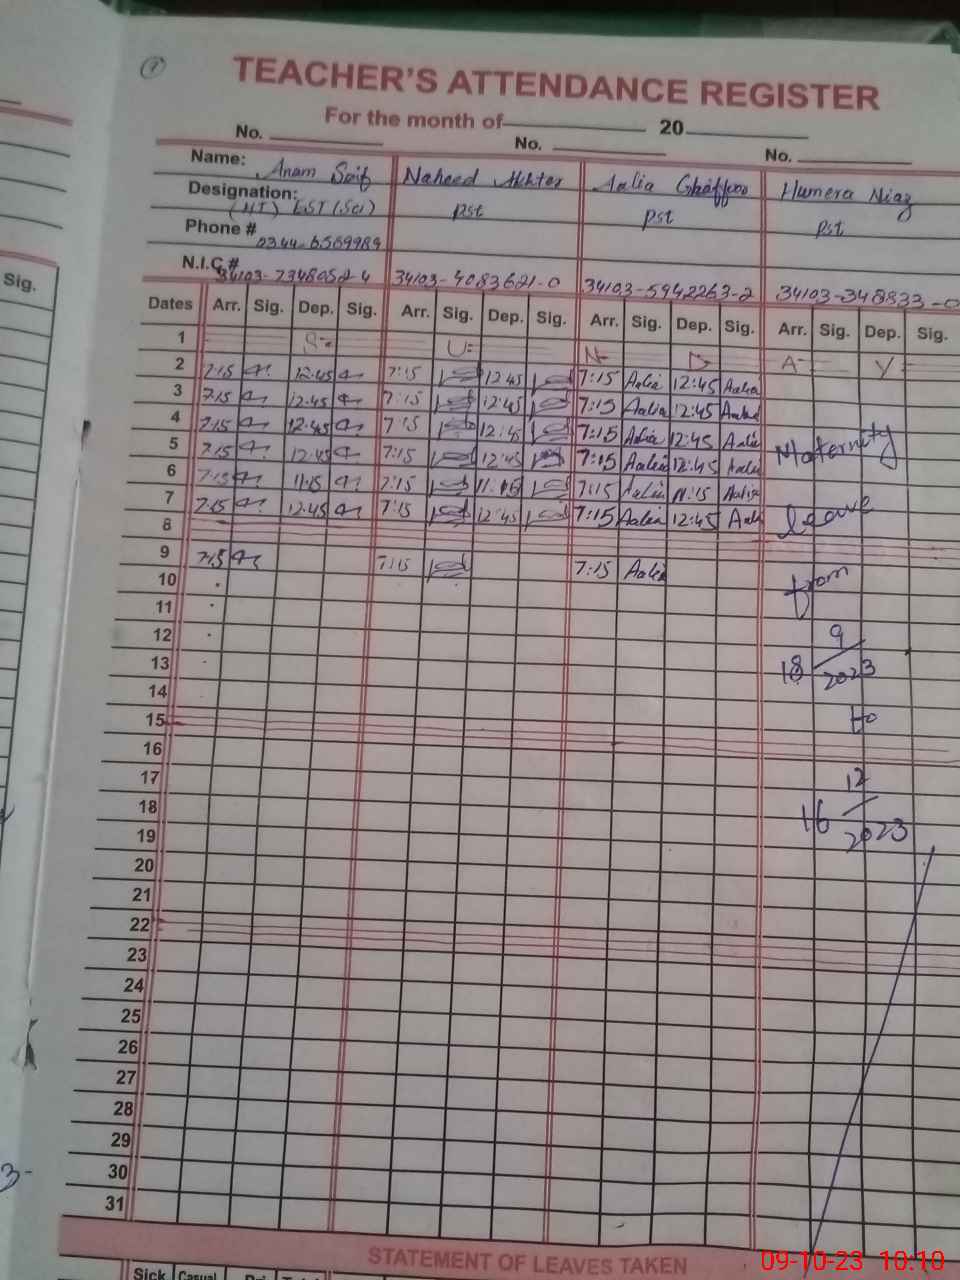 1
TEACHER'S ATTENDANCE REGISTER
For the month of 20
No. No. No.
Name: Anam Saif Naheed Akhter Aalia Ghaffoor Humera Niaz
Designation: (HT) EST (Sci) Pst Pst Pst
Phone # 0344-6569989
N.I.C.# 34103-7348052-4 34103-4083621-0 34103-5942263-2 34103-348833-0
Sig.
Dates Arr. Sig. Dep. Sig. Arr. Sig. Dep. Sig. Arr. Sig. Dep. Sig. Arr. Sig. Dep. Sig.
1 S U N D A Y
2 7:15 12:45 7:15 12:45 7:15 Aalia 12:45 Aalia
3 7:15 12:45 7:15 12:45 7:15 Aalia 12:45 Aalia
4 7:15 12:45 7:15 12:45 7:15 Aalia 12:45 Aalia Maternity
5 7:15 12:45 7:15 12:45 7:15 Aalia 12:45 Aalia
6 7:15 11:15 7:15 11:15 7:15 Aalia 11:15 Aalia
7 7:15 12:45 7:15 12:45 7:15 Aalia 12:45 Aalia leave
8
9 7:15 7:15 7:15 Aalia
10 from
11
12
13 18/9/2023
14
15 to
16
17
18 16/12/2023
19
20
21
22
23
24
25
26
27
28
29
30
31
3-
STATEMENT OF LEAVES TAKEN
Sick Casual
09-10-23 10:10